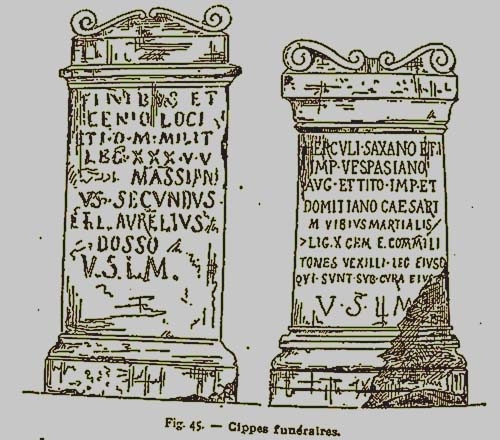 FINIBVS ET
GENIO LOCI
ETI·O·M·MILIT
LEG·XXX·V·V
MASSIANI
VS·SECVNDVS
ET·L·AVRELIVS
DOSSO
V.S.L.M.
HERCULI·SAXANO ET
IMP·VESPASIANO
AUG·ET TITO·IMP·ET
DOMITIANO CAESARI
M VIBIUS MARTIALIS
>LIG.X GEM E.COMMILI
TONES VEXILLI·LEG EIUSD
QVI·SVNT·SVB·CVRA EIUS
V·S·LM
Fig. 45. — Cippes funéraires.